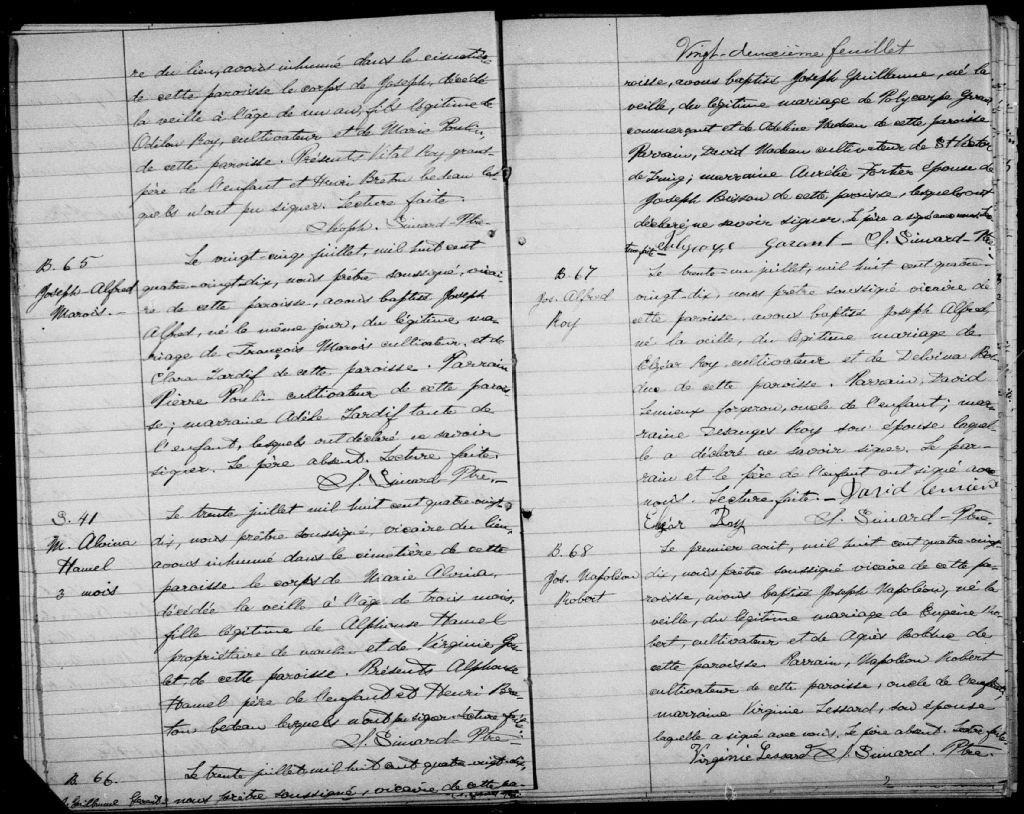 re du lieu, avons inhumé dans le cimetière
de cette paroisse le corps de Joseph, décédé
la veille à l'âge de un an, fils légitime de
Odilon Roy, cultivateur et de Marie Poulin,
de cette paroisse. Présents Vital Roy grand-
père de l'enfant et Henri Breton bedeau les-
quels n'ont pu signer. Lecture faite.
Simard Ptre
B. 65
Joseph Alfred
Marois.
Le vingt-cinq juillet, mil huit cent
quatre-vingt-dix, nous prêtre soussigné, vicai-
re de cette paroisse, avons baptisé Joseph
Alfred, né le même jour, du légitime ma-
riage de François Marois cultivateur, et de
Clara Tardif de cette paroisse. Parrain
Pierre Poulin cultivateur de cette parois-
se; marraine Adèle Tardif tante de
l'enfant, lesquels ont déclaré ne savoir
signer. Le père absent. Lecture faite.
Simard Ptre.
S. 41
M. Alvina
Hamel
3 mois
Le trente juillet mil huit cent quatre-vingt-
dix, nous prêtre soussigné, vicaire du lieu,
avons inhumé dans le cimetière de cette
paroisse le corps de Marie Alvina,
décédée la veille à l'âge de trois mois,
fille légitime de Alphonse Hamel
propriétaire de moulin et de Virginie
de cette paroisse. Présents Alphonse
Hamel père de l'enfant et Henri Bre-
ton bedeau lesquels n'ont pu signer. Lecture faite.
Simard Ptre
B. 66.
J. Guillaume
Le trente juillet mil huit cent quatre-vingt-dix,
nous prêtre soussigné, vicaire de cette pa-
Vingt-deuxième feuillet
roisse, avons baptisé Joseph Guillaume, né la
veille, du légitime mariage de Polycarpe
commerçant et de Adeline Nadeau de cette paroisse
Parrain, David Nadeau cultivateur de St Victor
de Tring; marraine Aurélie Fortier épouse de
Joseph Bisson de cette paroisse, lesquels ont
déclaré ne savoir signer. Le père a signé avec nous. Lec-
ture faite. Garant Simard Ptre
B. 67
Jos. Alfred
Roy
Le trente-un juillet, mil huit cent quatre-
vingt-dix, nous prêtre soussigné vicaire de
cette paroisse, avons baptisé Joseph Alfred,
né la veille, du légitime mariage de
Elzéar Roy, cultivateur et de Delvina
de cette paroisse. Parrain, David
Lemieux forgeron, oncle de l'enfant; mar-
raine Desanges Roy son épouse laquel-
le a déclaré ne savoir signer. Le par-
rain et le père de l'enfant ont signé avec
nous. Lecture faite. David Lemieux
Elzéar Roy Simard Ptre
B. 68
Jos. Napoléon
Robert
Le premier août, mil huit cent quatre-vingt-
dix, nous prêtre soussigné vicaire de cette pa-
roisse, avons baptisé Joseph Napoléon, né la
veille, du légitime mariage de Eugène Ro-
bert, cultivateur et de Agnès Bolduc de
cette paroisse. Parrain, Napoléon Robert
cultivateur de cette paroisse, oncle de l'enfant,
marraine Virginie Lessard, son épouse
laquelle a signé avec nous. Le père absent. Lecture faite
Virginie Lessard Simard Ptre.
2